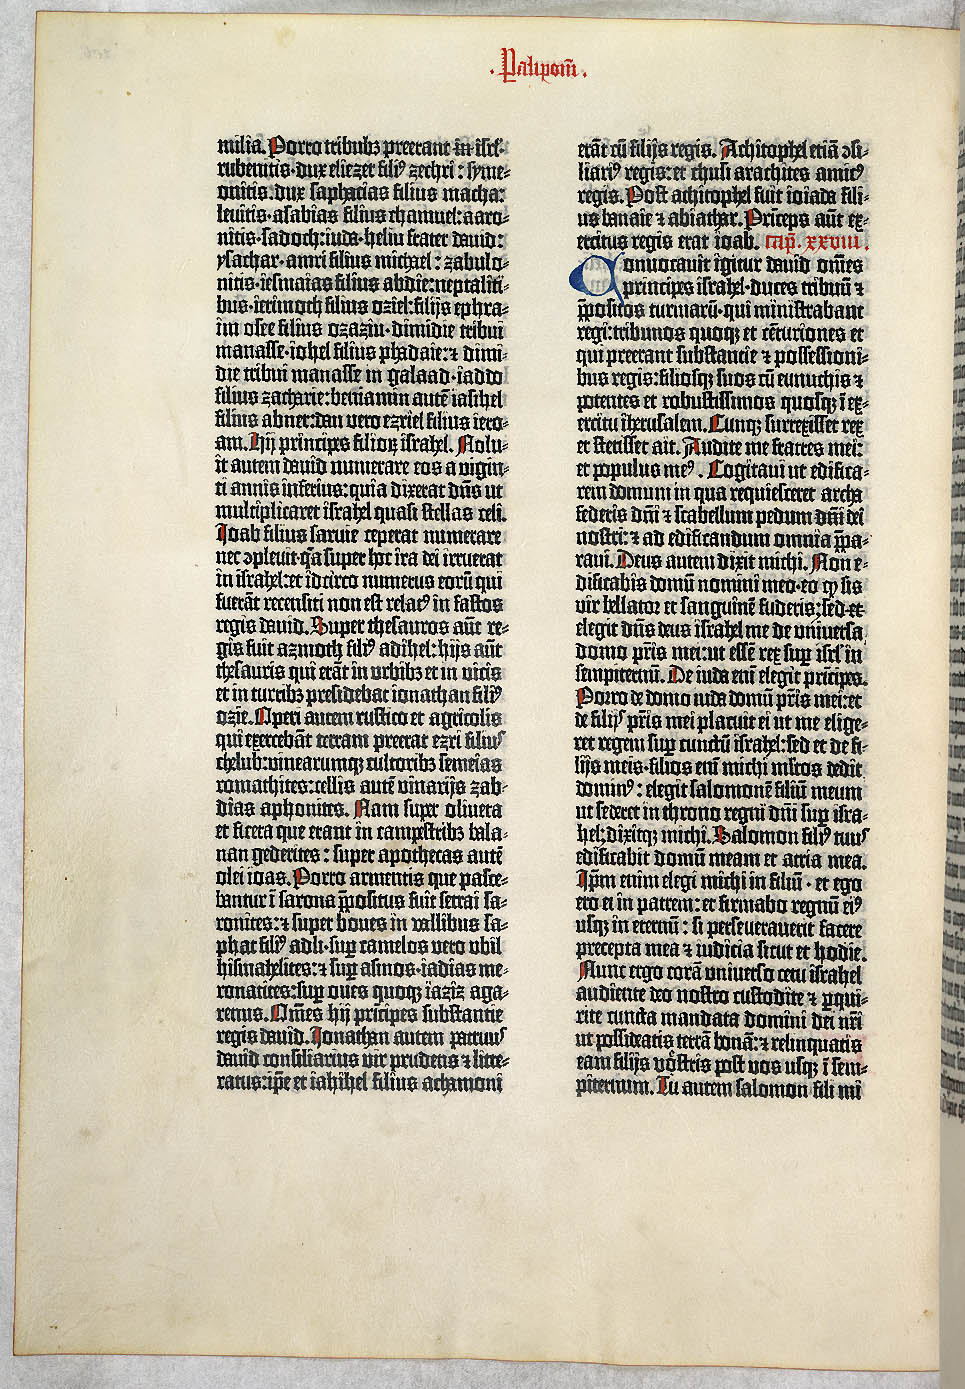 . Palipom̄ .
milia. Porro tribubꝫ preerant in isrl'.
rubenitis·dux eliezer filiꝰ zechri: syme-
onitis·dux saphatias filius macha:
leuitis·asabias filius chamuel: aaro-
nitis·sadoch: iuda·heliu frater dauid:
ysachar·amri filius michael: zabulo-
nitis·iesmaias filius abdie: neptaliti-
bus·ierimoth filius oziel: filijs ephra-
im osee filius ozaziu·dimidie tribui
manasse·iohel filius phadaie: ⁊ dimi-
die tribui manasse in galaad·iaddo
filius zacharie: beniamin autē iasihel
filius abner: dan vero ezriel filius iero-
am. Hij principes filioꝝ israhel. Nolu-
it autem dauid numerare eos a vigin-
ti annis inferius: quia dixerat dn̄s ut
multiplicaret israhel quasi stellas celi.
Ioab filius saruie ceperat numerare
nec ↄpleuit·q̄a super hoc ira dei irruerat
in israhel: et idcirco numerus eorū qui
fuerāt recensiti non est relatꝰ in fastos
regis dauid. Super thesauros aūt re-
gis fuit azmoth filiꝰ adihel: hijs aūt
thesauris qui erāt in vrbibꝫ et in vicis
et in turribꝫ presidebat ionathan filiꝰ
ozie. Operi autem rustico et agricolis
qui exercebāt terram preerat ezri filiuˢ
chelub: vinearumqꝫ cultoribꝫ semeias
romathites: cellis autē vinarijs zab-
dias aphonites. Nam super oliueta
et ficeta que erant in campestribꝫ bala-
nan gederites: super apothecas autē
olei ioas. Porro armentis que pasce-
bantur ī sarona p̄positus fuit setrai sa-
ronites: ⁊ super boues in vallibus sa-
phat filiꝰ adli·suꝑ camelos vero vbil
hismahelites: ⁊ suꝑ asinos·iadias me-
ronatites: suꝑ oues quoqꝫ iaziz aga-
renus. Om̄es hij prīcipes substantie
regis dauid. Ionathan autem patruuˢ
dauid consiliarius vir prudens ⁊ litte-
ratus: ip̄e et iahihel filius achamoni
erāt cū filijs regis. Achitophel etiā ↄsi-
liariꝰ regis: et chusi arachites amicꝰ
regis. Post achitophel fuit ioiada fili-
us banaie ⁊ abiathar. Prīceps aūt ex-
ercitus regis erat ioab. Cap̄. xxviii.
Conuocauit īgitur dauid om̄es
principes israhel·duces tribuū ⁊
p̄positos turmarū·qui ministrabant
regi: tribunos quoqꝫ et cēturiones et
qui preerant substantie ⁊ possessioni-
bus regis: filiosqꝫ suos cū eunuchis ⁊
potentes et robustissimos quosqꝫ ī ex-
ercitu iherusalem. Cunqꝫ surrexisset rex
et stetisset ait. Audite me fratres mei:
et populus meꝰ. Cogitaui ut edifica-
rem domum in qua requiesceret archa
federis dn̄i ⁊ scabellum pedum dn̄i dei
nostri: ⁊ ad edificandum omnia p̄pa-
raui. Deus autem dixit michi. Non e-
dificabis domū nomini meo·eo ꝙ sis
vir bellator et sanguinē fuderis: sed et
elegit dn̄s deus israhel me de vniuersa
domo pr̄is mei: ut essē rex suꝑ isrl' in
sempiternū. De iuda enī elegit prīcipes.
Porro de domo iuda domū pr̄is mei: et
de filijˢ pr̄is mei placuit ei ut me elige-
ret regem suꝑ cunctū israhel: sed et de fi-
lijs meis·filios enī michi m̄ltos dedit
dominꝰ: elegit salomonē filiū meum
ut sederet in throno regni dn̄i suꝑ isra-
hel: dixitqꝫ michi. Salomon filiꝰ tuuˢ
edificabit domū meam et atria mea.
Ip̄m enim elegi michi in filiū·et ego
ero ei in patrem: et firmabo regnū eiꝰ
usqꝫ in eternū: si perseuerauerit facere
precepta mea ⁊ iudicia sicut et hodie.
Nunc ergo corā vniuerso cetu israhel
audiente deo nostro custodite ⁊ ꝑqui-
rite cuncta mandata domini dei nr̄i
ut possideatis terrā bonā: ⁊ relinquatis
eam filijs vestris post vos usqꝫ ī sem-
piternum. Tu autem salomon fili mi